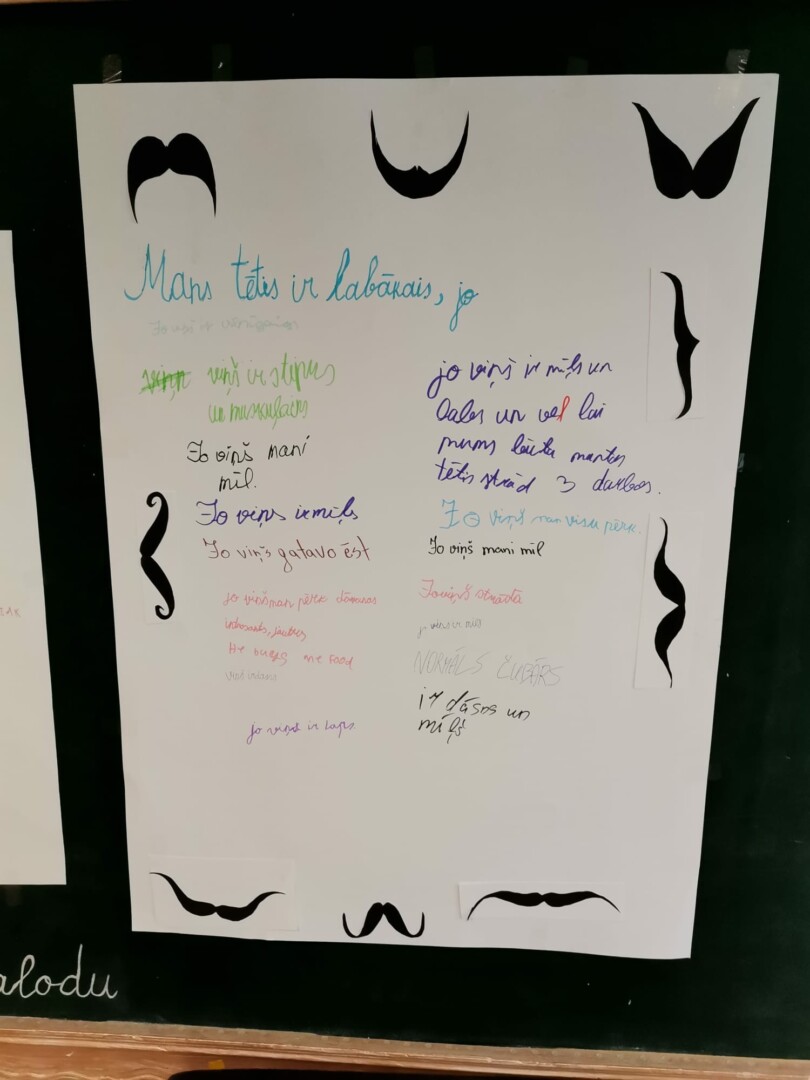 Mans tētis ir labākais, jo
viņš ir stiprs
un muskuļains
Jo viņš mani
mīl.
Jo viņš ir mīļš
Jo viņš gatavo ēst
jo viņš man pērk dāvanas
interesants, jautrs
He buys me food
jo viņš ir labs
jo viņš ir mīļš un
Dales un vēl lai
mums būtu mantas
tētis strād 3 darbos.
Jo viņš man visu pērk.
Jo viņš mani mīl
Jo viņš strādā
NORMĀLS ČUBĀRS
ir dāsns un
mīļš
alodu